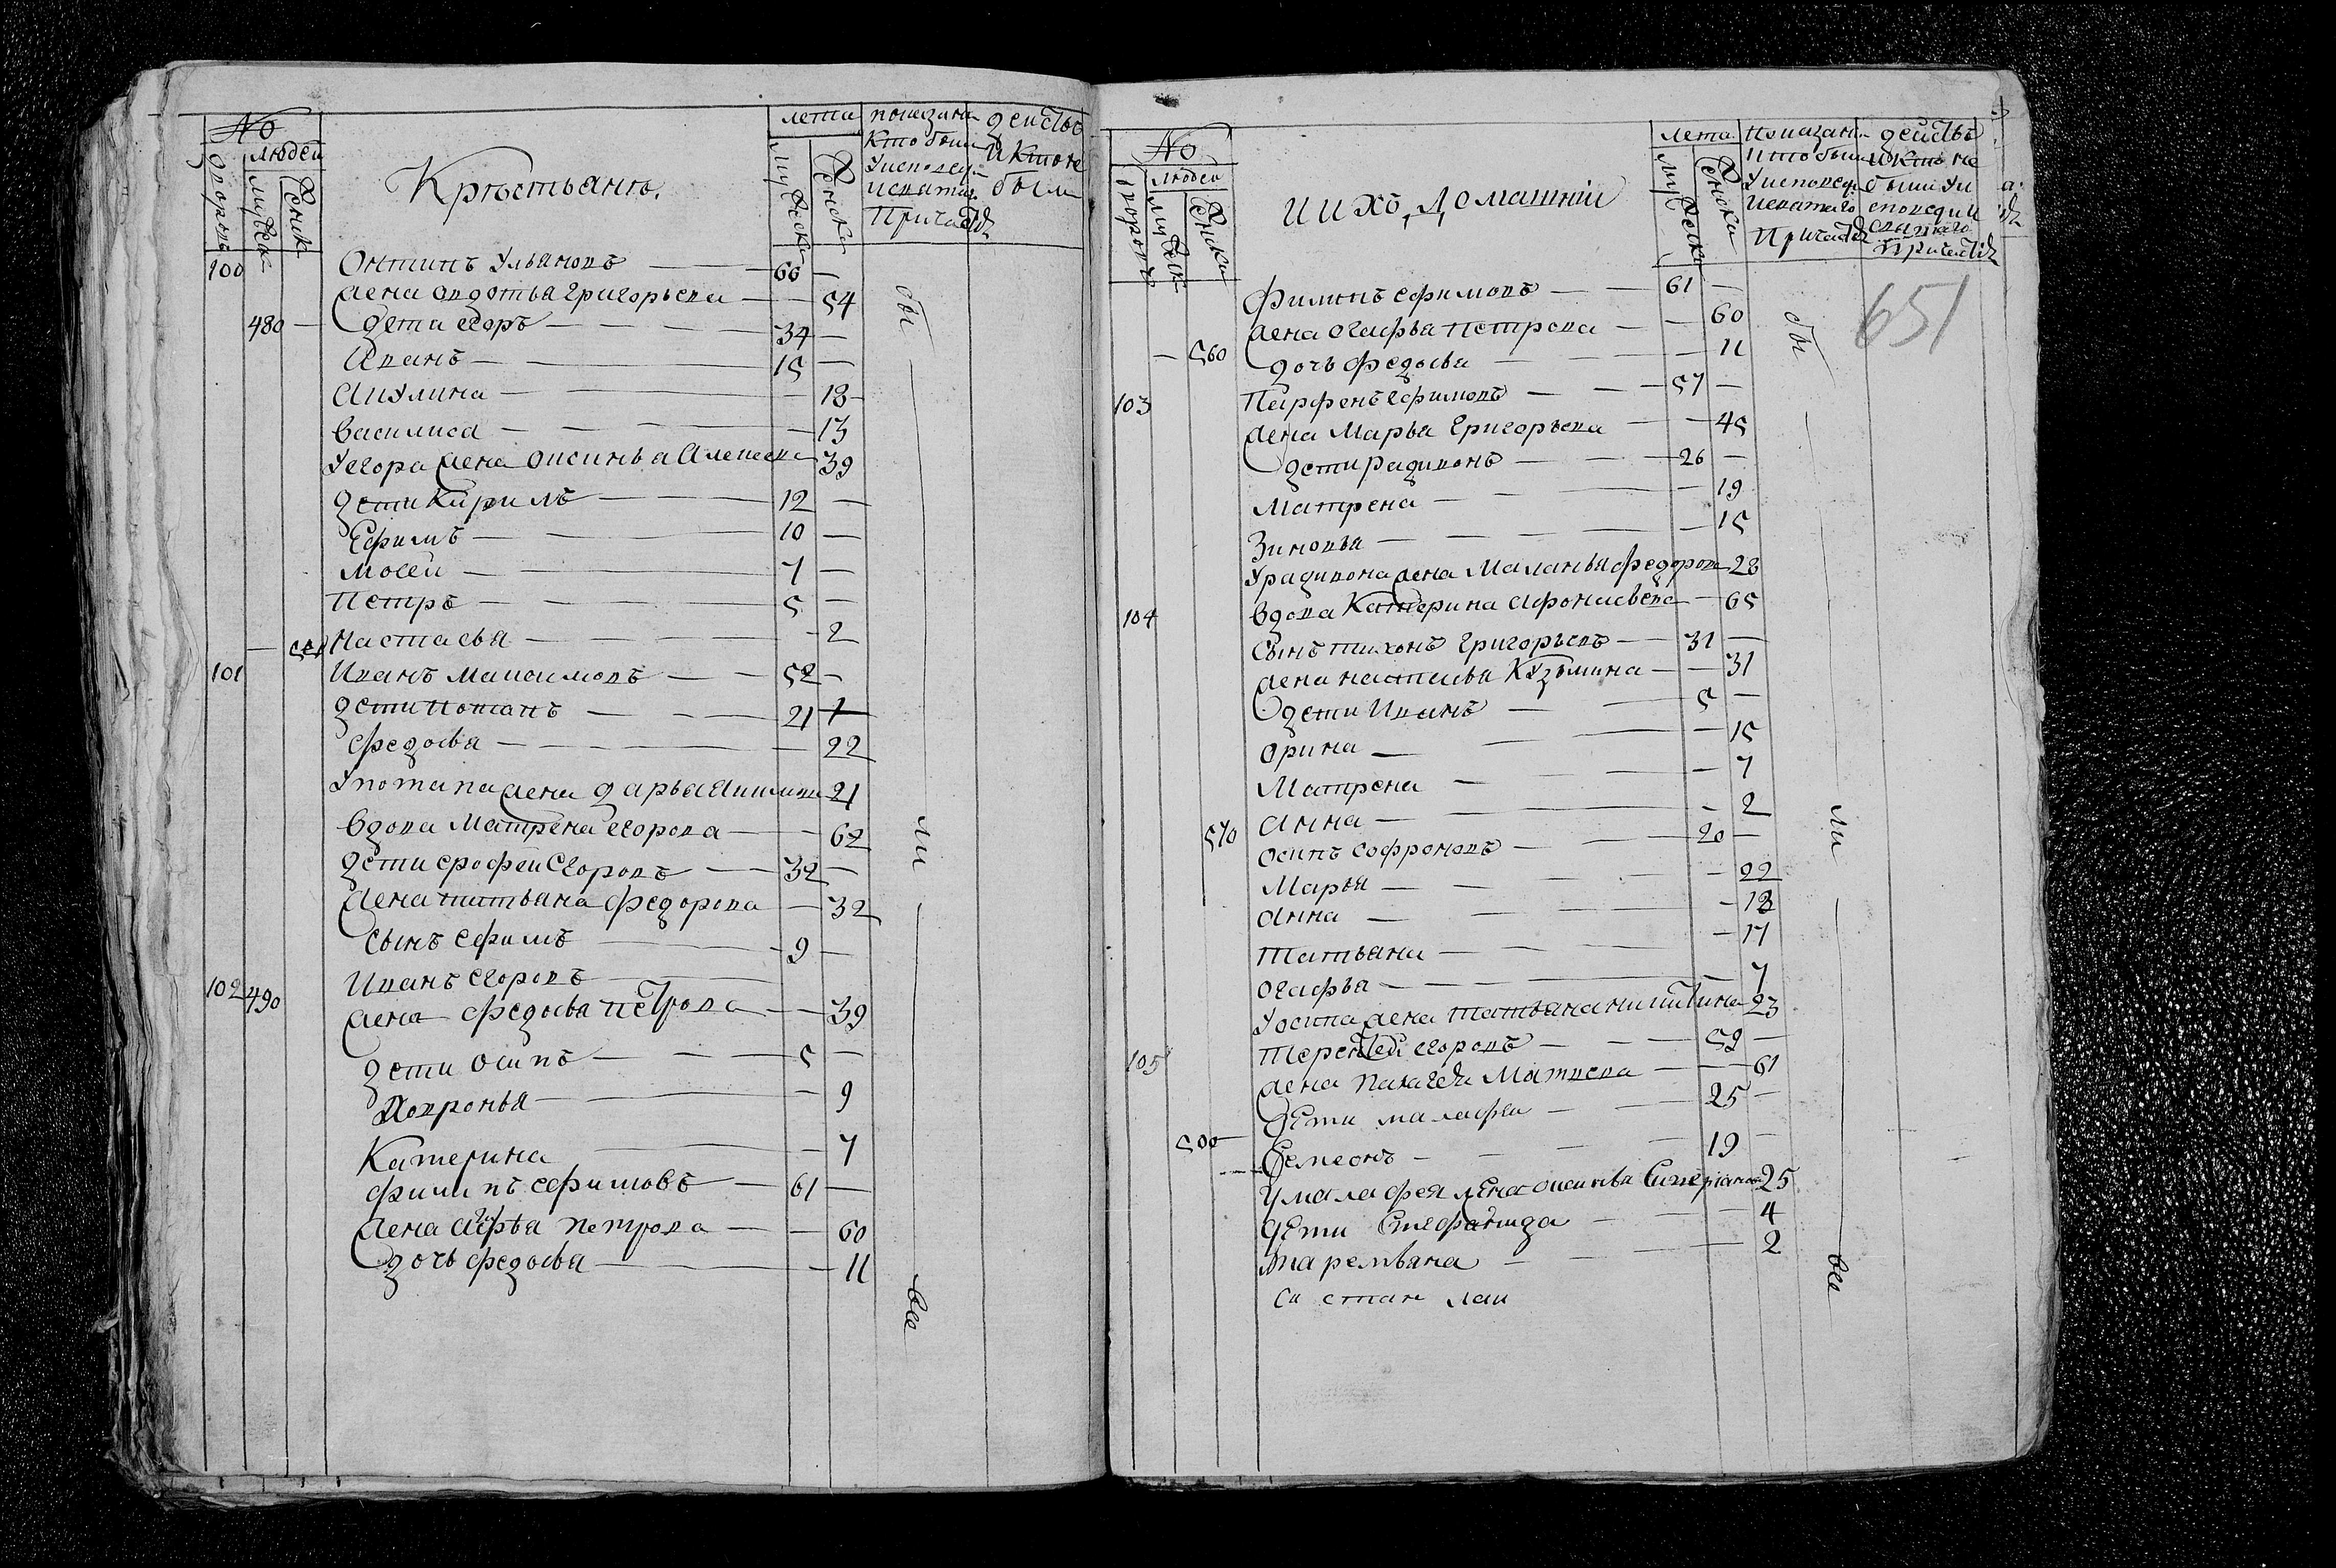 No
дворовъ
людей
мужеска
женска
Крѣстьянъ.
лета
мужеска
женска
показани
действъ
кто были
и кто не
Уисповеди
были
исвятаго
Причастія
100 Онтипъ Ульяновъ — 66 —
жена Овдотья Григорьева — — 54
480 — дети Егоръ — 34 —
Иванъ — 15 —
Акулина — — 18
Василиса — — 13
У Егора жена Оксинья Алексева 39
дети Кирилъ — 12 —
Ефимъ — 10 —
Мосеи — 7 —
Петръ — 5 —
Настасья — — 2
101 Иванъ Максимовъ — 52 —
дети Потапъ — 21 —
Федосья — — 22
У Потапа жена Дарья 21
Вдова Матрена Егорова — — 62
дети Ерофеи Егоровъ — 32 —
жена Татьяна Федорова — 32
Сынъ Ефимъ — 9 —
102 490 Иванъ Егоровъ —
жена Федосья Петрова — — 39
дети Осипъ — 5 —
Ховронья — — 9
Катерина — — 7
Филипъ Ефимовъ — 61 —
жена Агафья Петрова — — 60
дочь Федосья — — 11
бы
ли
все
No
дворовъ
людей
мужеска
женска
и ихъ Домашнии
лета
мужеска
женска
Показани
действъ
кто были
и кто не
Уисповеди
были Уи
исвятаго
споведи и
Причастія
святаго
Причастія
651
Филипъ Ефимовъ — — 61 —
жена Огафья Петрова — — 60
— 560 дочь Федосья — — 11
103 Парфенъ Ефимовъ — — 57 —
жена Марья Григорьева — — 45
дети Радивонъ — — 26 —
Матрена — — 19
Зиновья — — 15
У Радивона жена Маланья Федорова 28
104 Вдова Катерина Афонасьева — 65
Сынъ Тихонъ Григорьевъ — 31 —
жена Настасья Кузьмина — — 31
дети Иванъ — 5 —
Орина — — 15
Матрена — — 7
Анна — — 2
570 Осипъ Софроновъ — 20 —
Марья — — 22
Анна — — 18
Татьяна — — 17
Огафья — — 7
У Осипа жена Татьяна Никитина 23
105 Терентей Егоровъ — — 59 —
жена Палагея Матвеева — — 61
Дети Малафеи — 25 —
500 — Семеонъ — 19 —
У Малафея жена Оксинья 25
Дети — — 4
— 2
бы
ли
все